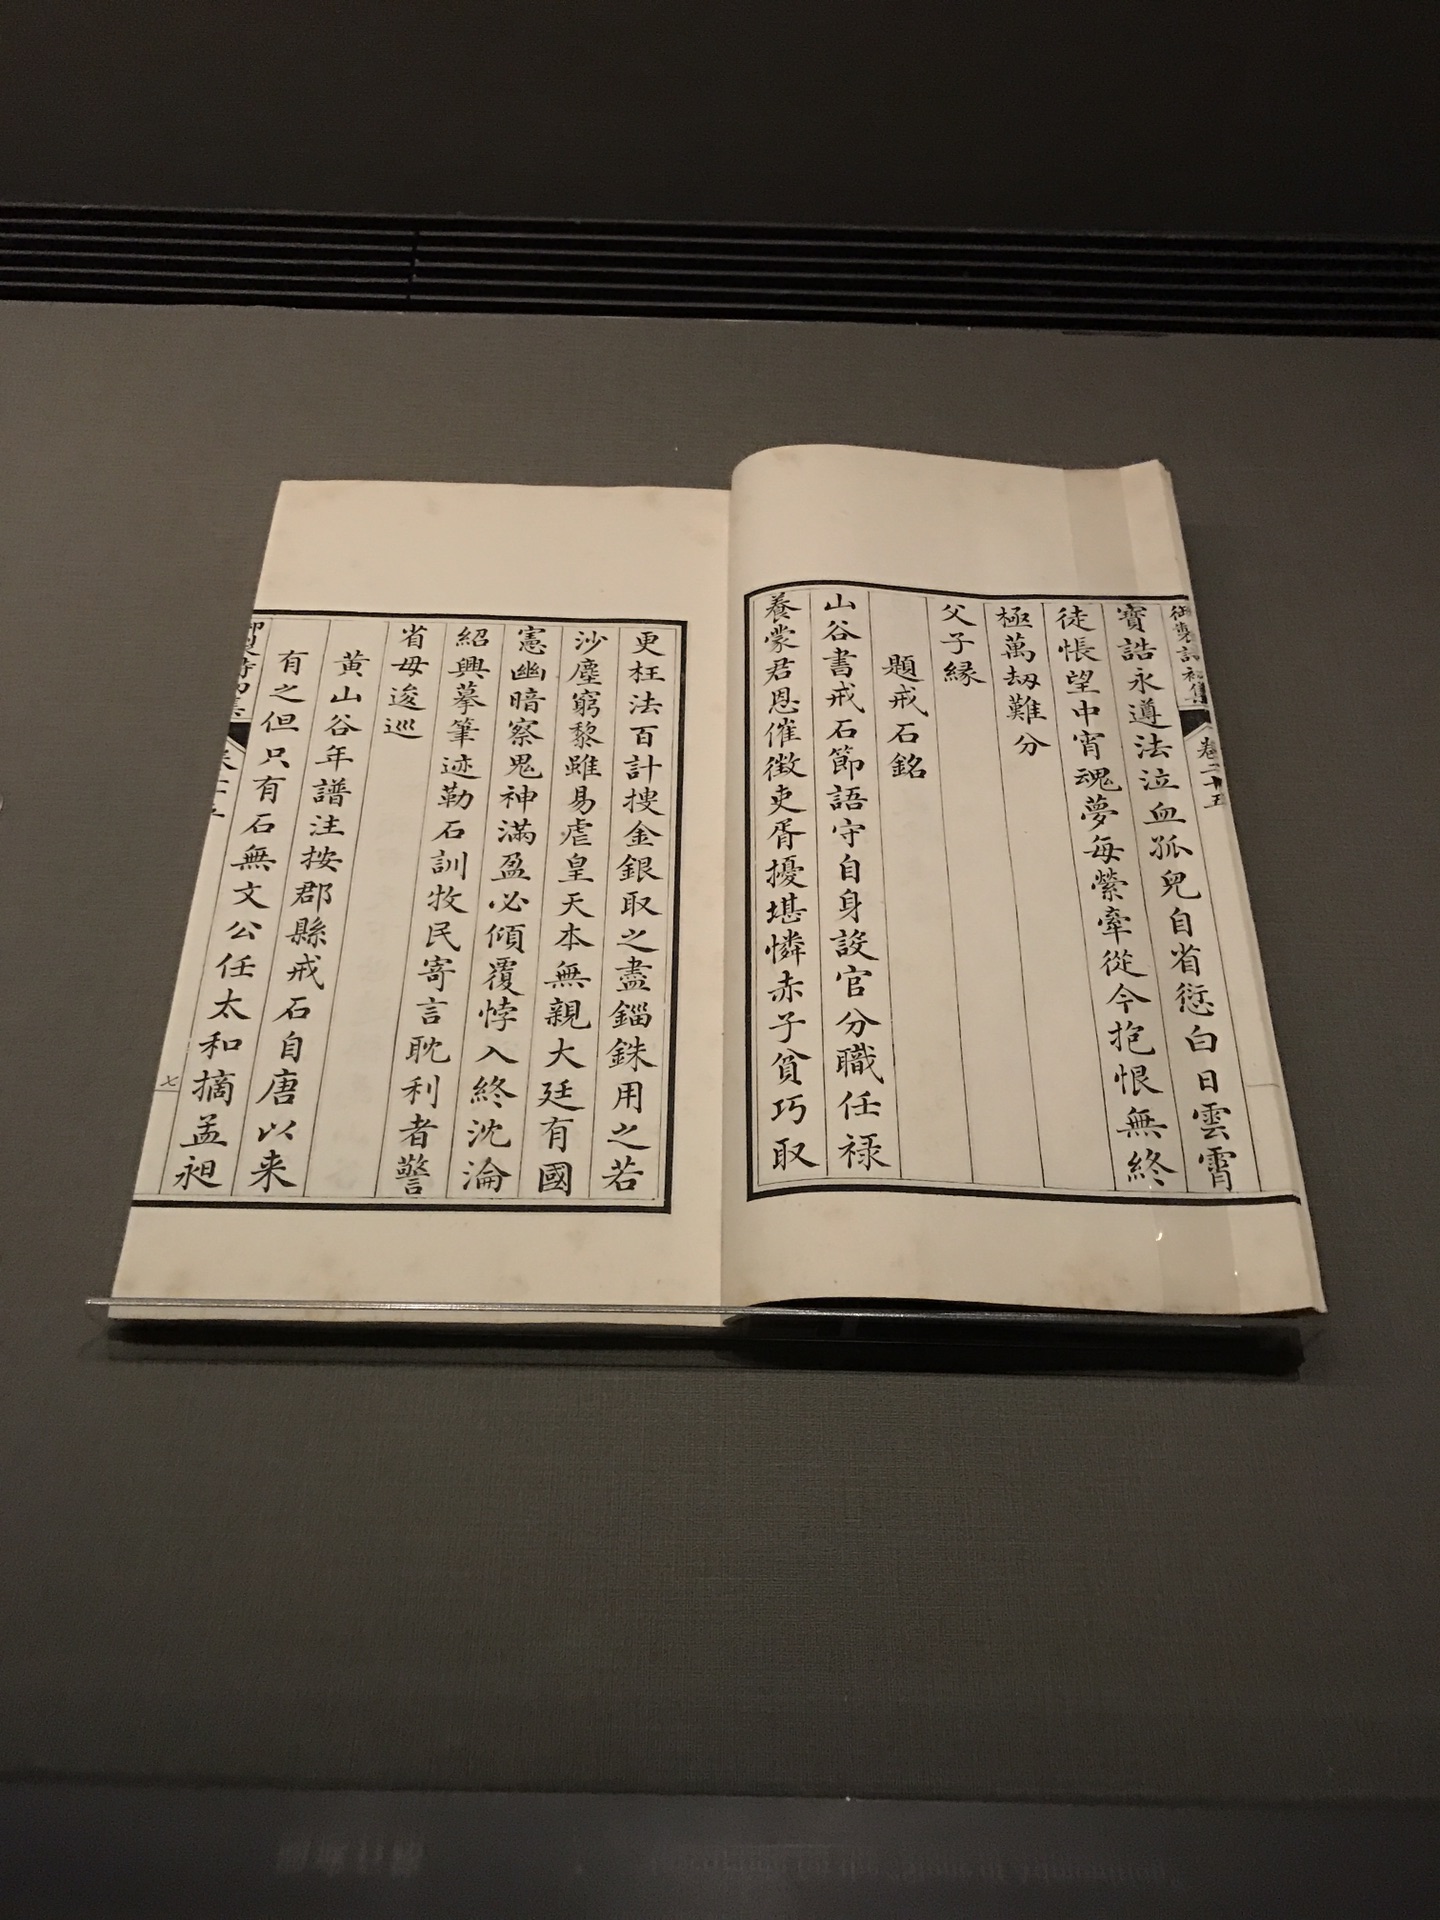 御製詩初集 卷二十五
寶誥永遵法泣血孤兒自省愆白日雲霄
徒悵望中宵魂夢每縈牽從今抱恨無終
極萬劫難分
父子緣
題戒石銘
山谷書戒石節語守自身設官分職任祿
養蒙君恩催徵吏胥擾堪憐赤子貧巧取
更枉法百計搜金銀取之盡錙銖用之若
沙塵窮黎雖易虐皇天本無親大廷有國
憲幽暗察鬼神滿盈必傾覆悖入終沈淪
紹興摹筆迹勒石訓牧民寄言耽利者警
省毋逡巡
黃山谷年譜注按郡縣戒石自唐以来
有之但只有石無文公任太和摘孟昶
七